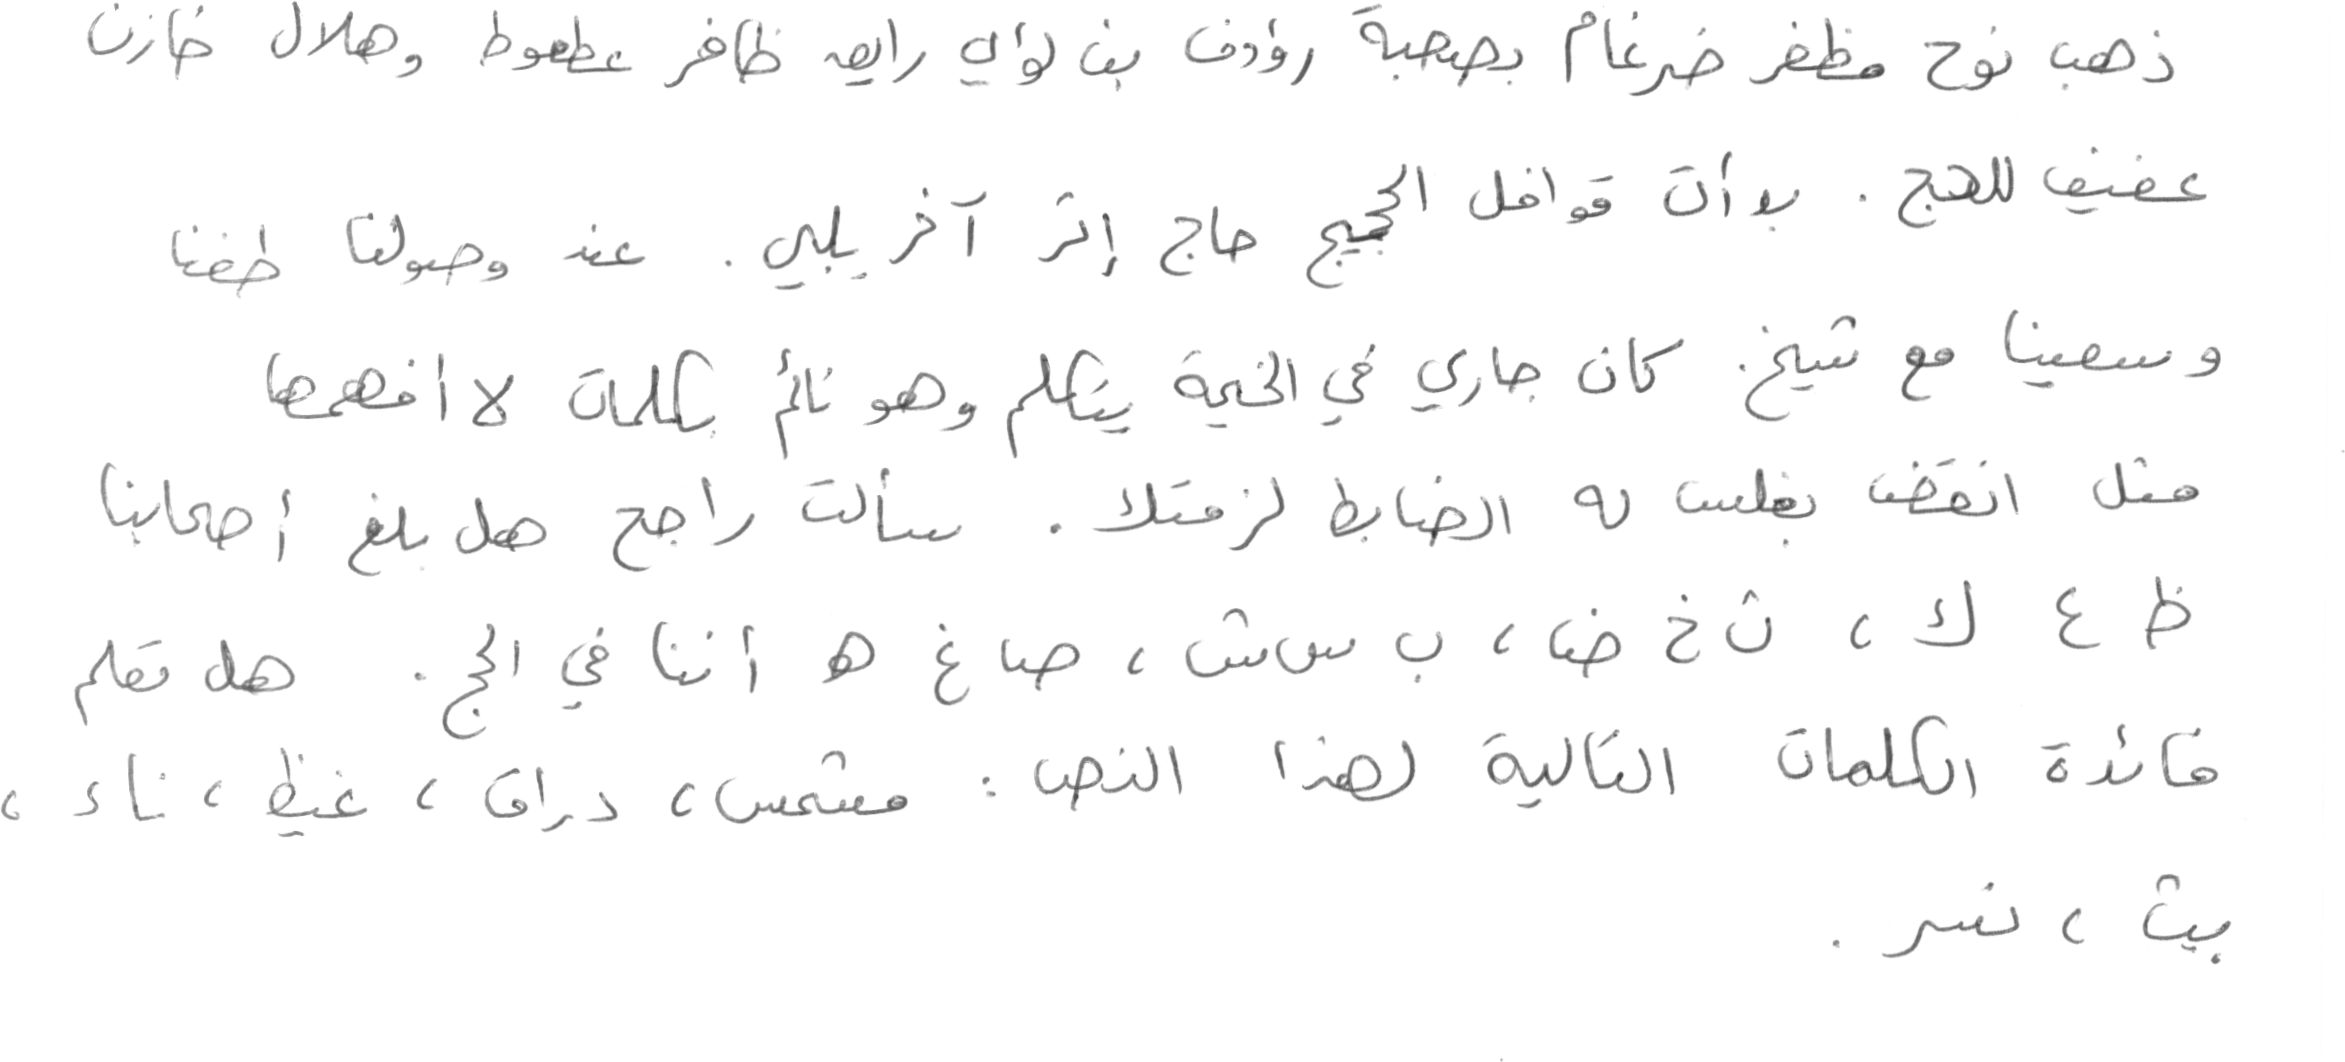 ذهب نوح مظفر ضرغام بصحبة رؤوف بن لؤي رايمه ظافر عطعوط وهلال خازن
عفيف للحج . بدأت قوافل الحجيج حاج إثر آخر يلبي . عند وصولنا طفنا
وسعينا مع شيخ . كان جاري في الخيمة يتكلم وهو نائم بكلمات لا أفهمها
مثل انقض بغلس له الضابط لزمتك . سألت راجح هل بلغ أصحابنا
ظ ع ك ، ث خ ض ، ب س ش ، ص غ ه أننا في الحج . هل تعلم
فائدة الكلمات التالية لهذا النص : مشمس ، دراق ، غيظ ، ناء ،
بيث ، نسر .